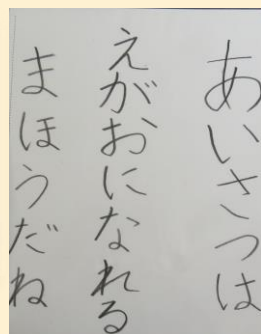 あいさつは
えがおになれる
まほうだね